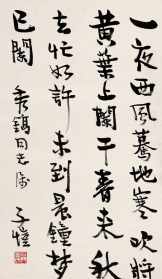 一夜西風驀地寒吹將
黃葉上闌干春來秋
去忙如許未到晨鐘夢
已闌 秀 同志屬 子愷